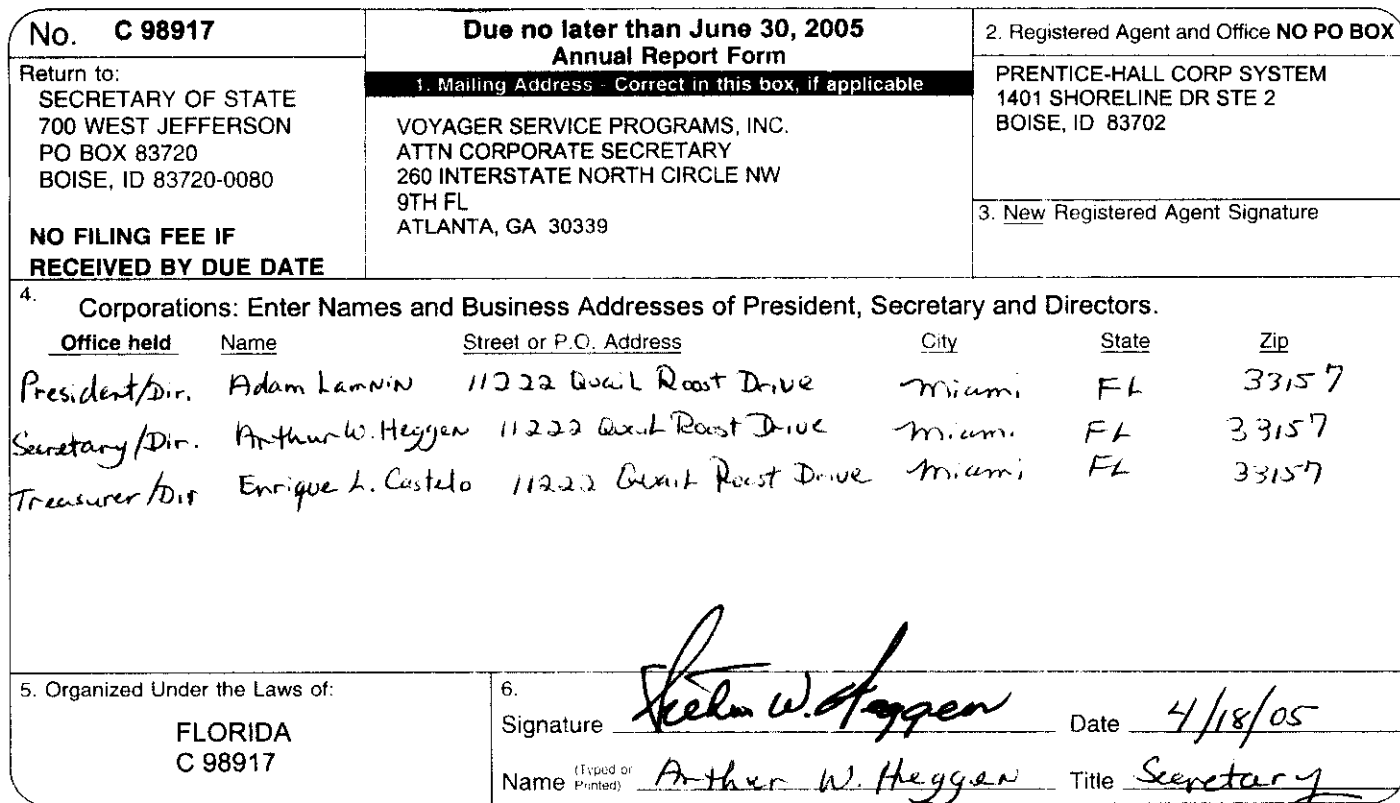 No. C 98917
Return to:
SECRETARY OF STATE
700 WEST JEFFERSON
PO BOX 83720
BOISE, ID 83720-0080
NO FILING FEE IF
RECEIVED BY DUE DATE
Due no later than June 30, 2005
Annual Report Form
1. Mailing Address - Correct in this box, if applicable
VOYAGER SERVICE PROGRAMS, INC.
ATTN CORPORATE SECRETARY
260 INTERSTATE NORTH CIRCLE NW
9TH FL
ATLANTA, GA 30339
2. Registered Agent and Office NO PO BOX
PRENTICE-HALL CORP SYSTEM
1401 SHORELINE DR STE 2
BOISE, ID 83702
3. New Registered Agent Signature
4. Corporations: Enter Names and Business Addresses of President, Secretary and Directors.
Office held Name Street or P.O. Address City State Zip
President/Dir. Adam Lamnin 11222 Quail Roost Drive Miami FL 33157
Secretary/Dir. Arthur W. Heggen 11222 Quail Roost Drive Miami FL 33157
Treasurer/Dir Enrique L. Castelo 11222 Quail Roost Drive Miami FL 33157
5. Organized Under the Laws of:
FLORIDA
C 98917
6.
Signature Arthur W. Heggen Date 4/18/05
Name (Typed or Printed) Arthur W. Heggen Title Secretary